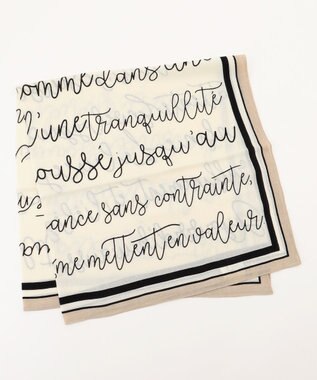 omme dans un
d'une tranquillité
oussé jusqu'au
ance sans contrainte,
me mettent en valeur